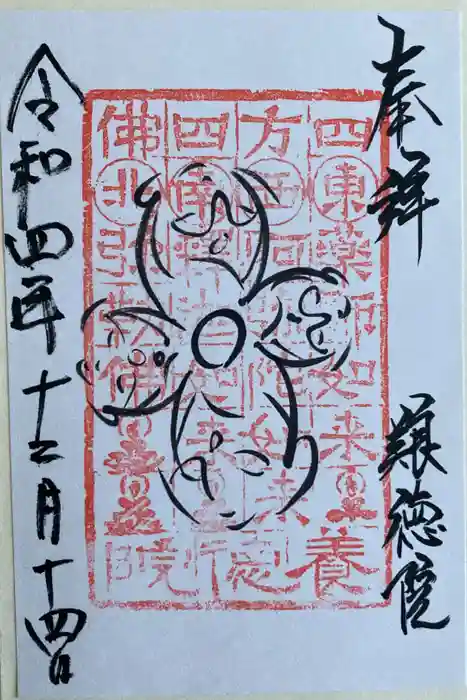 奉拝
養徳院
四東薬師如来
方西阿弥陀如来
四南釋迦如来
佛北弥勒佛
令和四年十二月十四日